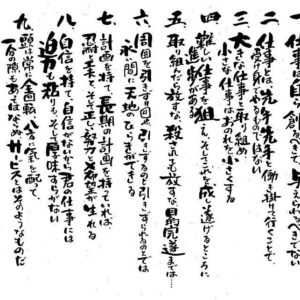 一、仕事は自ら創るべきで、与えられるべきでない
二、仕事とは、先手先手と働き掛けて行くことで、
受け身でやるものではない
三、大きな仕事と取り組め、
小さな仕事はおのれを小さくする
四、難しい仕事を狙え、そしてこれを成し遂げるところに
進歩がある
五、取り組んだら放すな、殺されても放すな、目的完遂までは…
六、周囲を引きずり回せ、引きずるのと引きずられるのとでは
永い間に天地のひらきができる
七、計画を持て、長期の計画を持っていれば、
忍耐と工夫と、そして正しい努力と希望が生れる
八、自信を持て、自信がないから君の仕事には
迫力も粘りも、そして厚味すらがない
九、頭は常に全回転、八方に気を配って、
一分の隙もあってはならぬ、サービスとはそのようなものだ